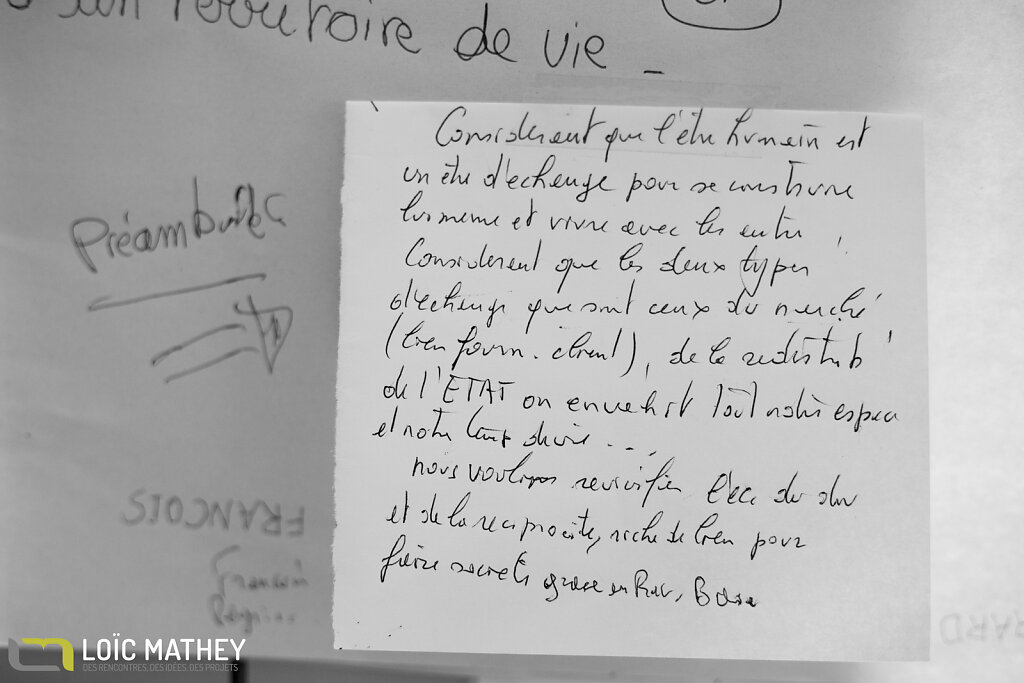 de vie -
Préambule
Considerent que l'être humain est
un être d'echenge pour se construire
lui meme et vivre avec les
Considerent que les deux types
d'echenge que sont ceux du merché
(lien fourn. client), de la redistrib
de l'ETAT on envehit tout notre espace
et notre temps de vie ...
nous voulons revivifier l'éco du don
et de la reciprocité, riche de lien pour
faire societé grace
FRANCOIS
LOÏC MATHEY
DES RENCONTRES, DES IDÉES, DES PROJETS